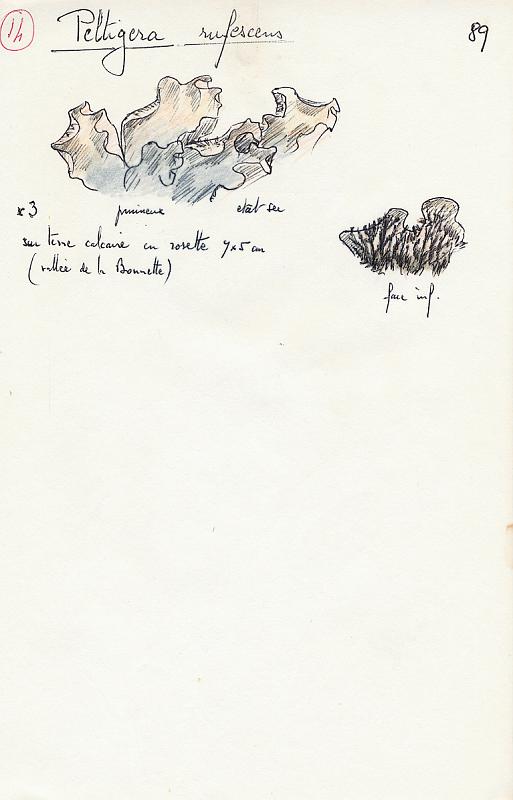 14
Peltigera rufescens 89
x 3 pruineux etat sec
sur terre calcaire en rosette 7x5 cm
(vallée de la Bonnette)
face inf.